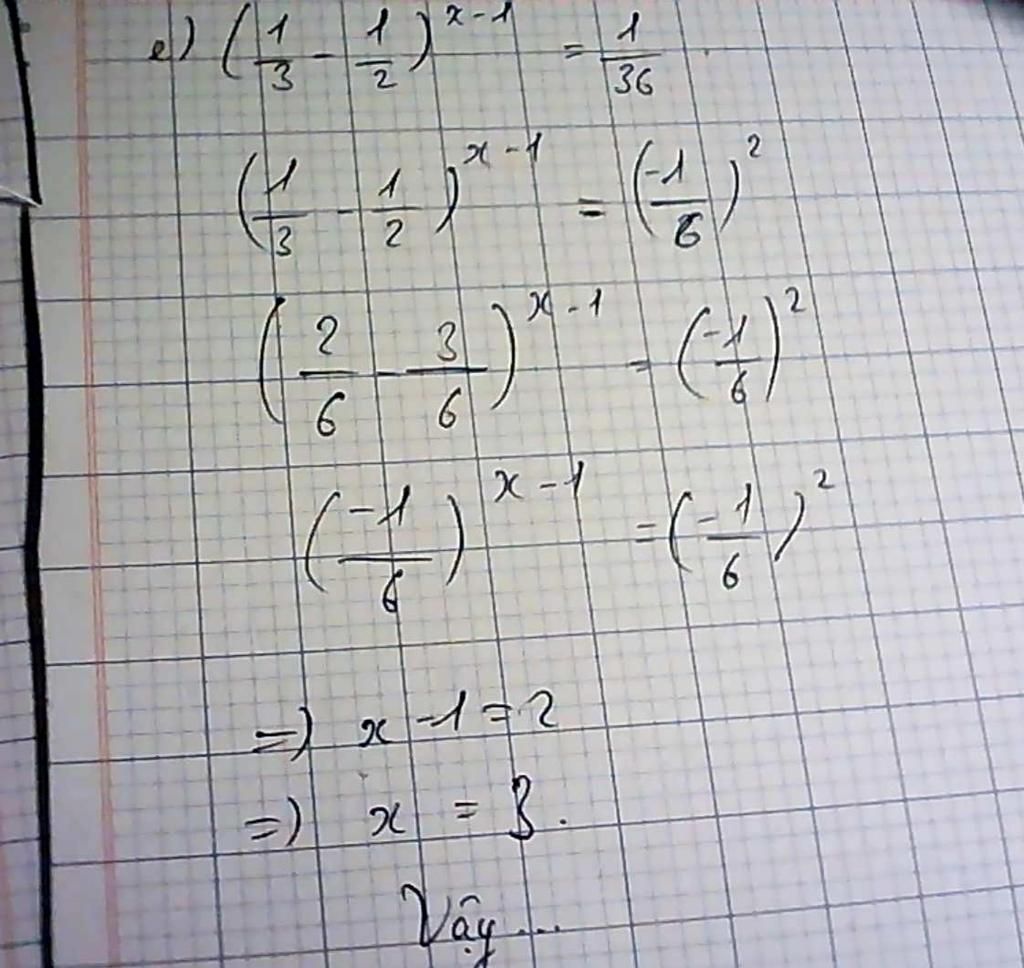 e) (1/3 - 1/2)^(x-1) = 1/36
(1/3 - 1/2)^(x-1) = (-1/6)^2
(2/6 - 3/6)^(x-1) = (-1/6)^2
(-1/6)^(x-1) = (-1/6)^2
=) x - 1 = 2
=) x = 3.
Vậy ...